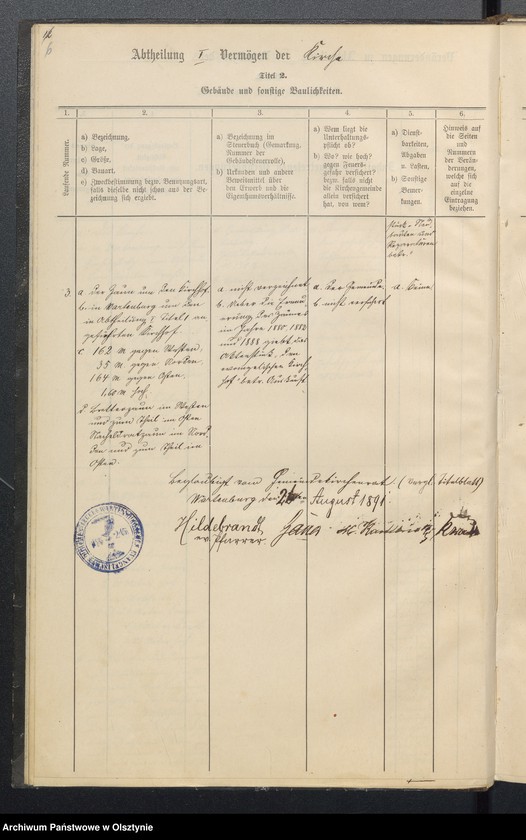 6
Abtheilung I Vermögen der Kirche
Titel 2.
Gebäude und sonstige Baulichkeiten.
1.
2.
3.
4.
5.
6.
Laufende Nummer.
a) Bezeichnung.
b) Lage,
c) Größe,
d) Bauart.
e) Zweckbestimmung bezw. Benutzungsart,
falls dieselbe nicht schon aus der Be-
zeichnung sich ergiebt.
a) Bezeichnung im
Steuerbuch (Gemarkung,
Nummer der
Gebäudesteuerrolle),
b) Urkunden und andere
Beweismittel über
den Erwerb und die
Eigenthumsverhältnisse.
a) Wem liegt die
Unterhaltungs-
pflicht ob?
b) Wo? wie hoch?
gegen Feuers-
gefahr versichert?
bezw. falls nicht
die Kirchengemeinde
allein versichert
hat, von wem?
a) Dienst-
barkeiten,
Abgaben
u. Lasten,
b) Sonstige
Bemer-
kungen.
Hinweis auf
die Seiten
und
Nummern
der Verän-
derungen,
welche sich
auf die
einzelne
Eintragung
beziehen.
bauten und
Reparaturen
betr.
3.
a. Der Zaun um den Kirchhof
b. in Wartenburg um den
in Abtheilung I Titel 1 an
geführten Kirchhof
c. 162 m gegen Westen.
35 m gegen Norden.
164 m gegen Osten.
1,60 m hoch.
d. Lattenzaun im Westen
und zum Theil im Osten
Drahtzaun im Nor
den und zum Theil im
Osten.
a. nicht verzeichnet
b. Ueber die Erneu
erung des Zaunes
im Jahre 1880, 1882
und 1888 giebt das
Aktenstück, den
evangelischen Kirch
hof betr. Auskunft
a. der Gemeinde
b. nicht versichert
a. Keine
Beglaubigt vom Gemeindekirchenrat. (vergl. Titelblatt)
Wartenburg den August 1891
Hildebrandt
ev Pfarrer